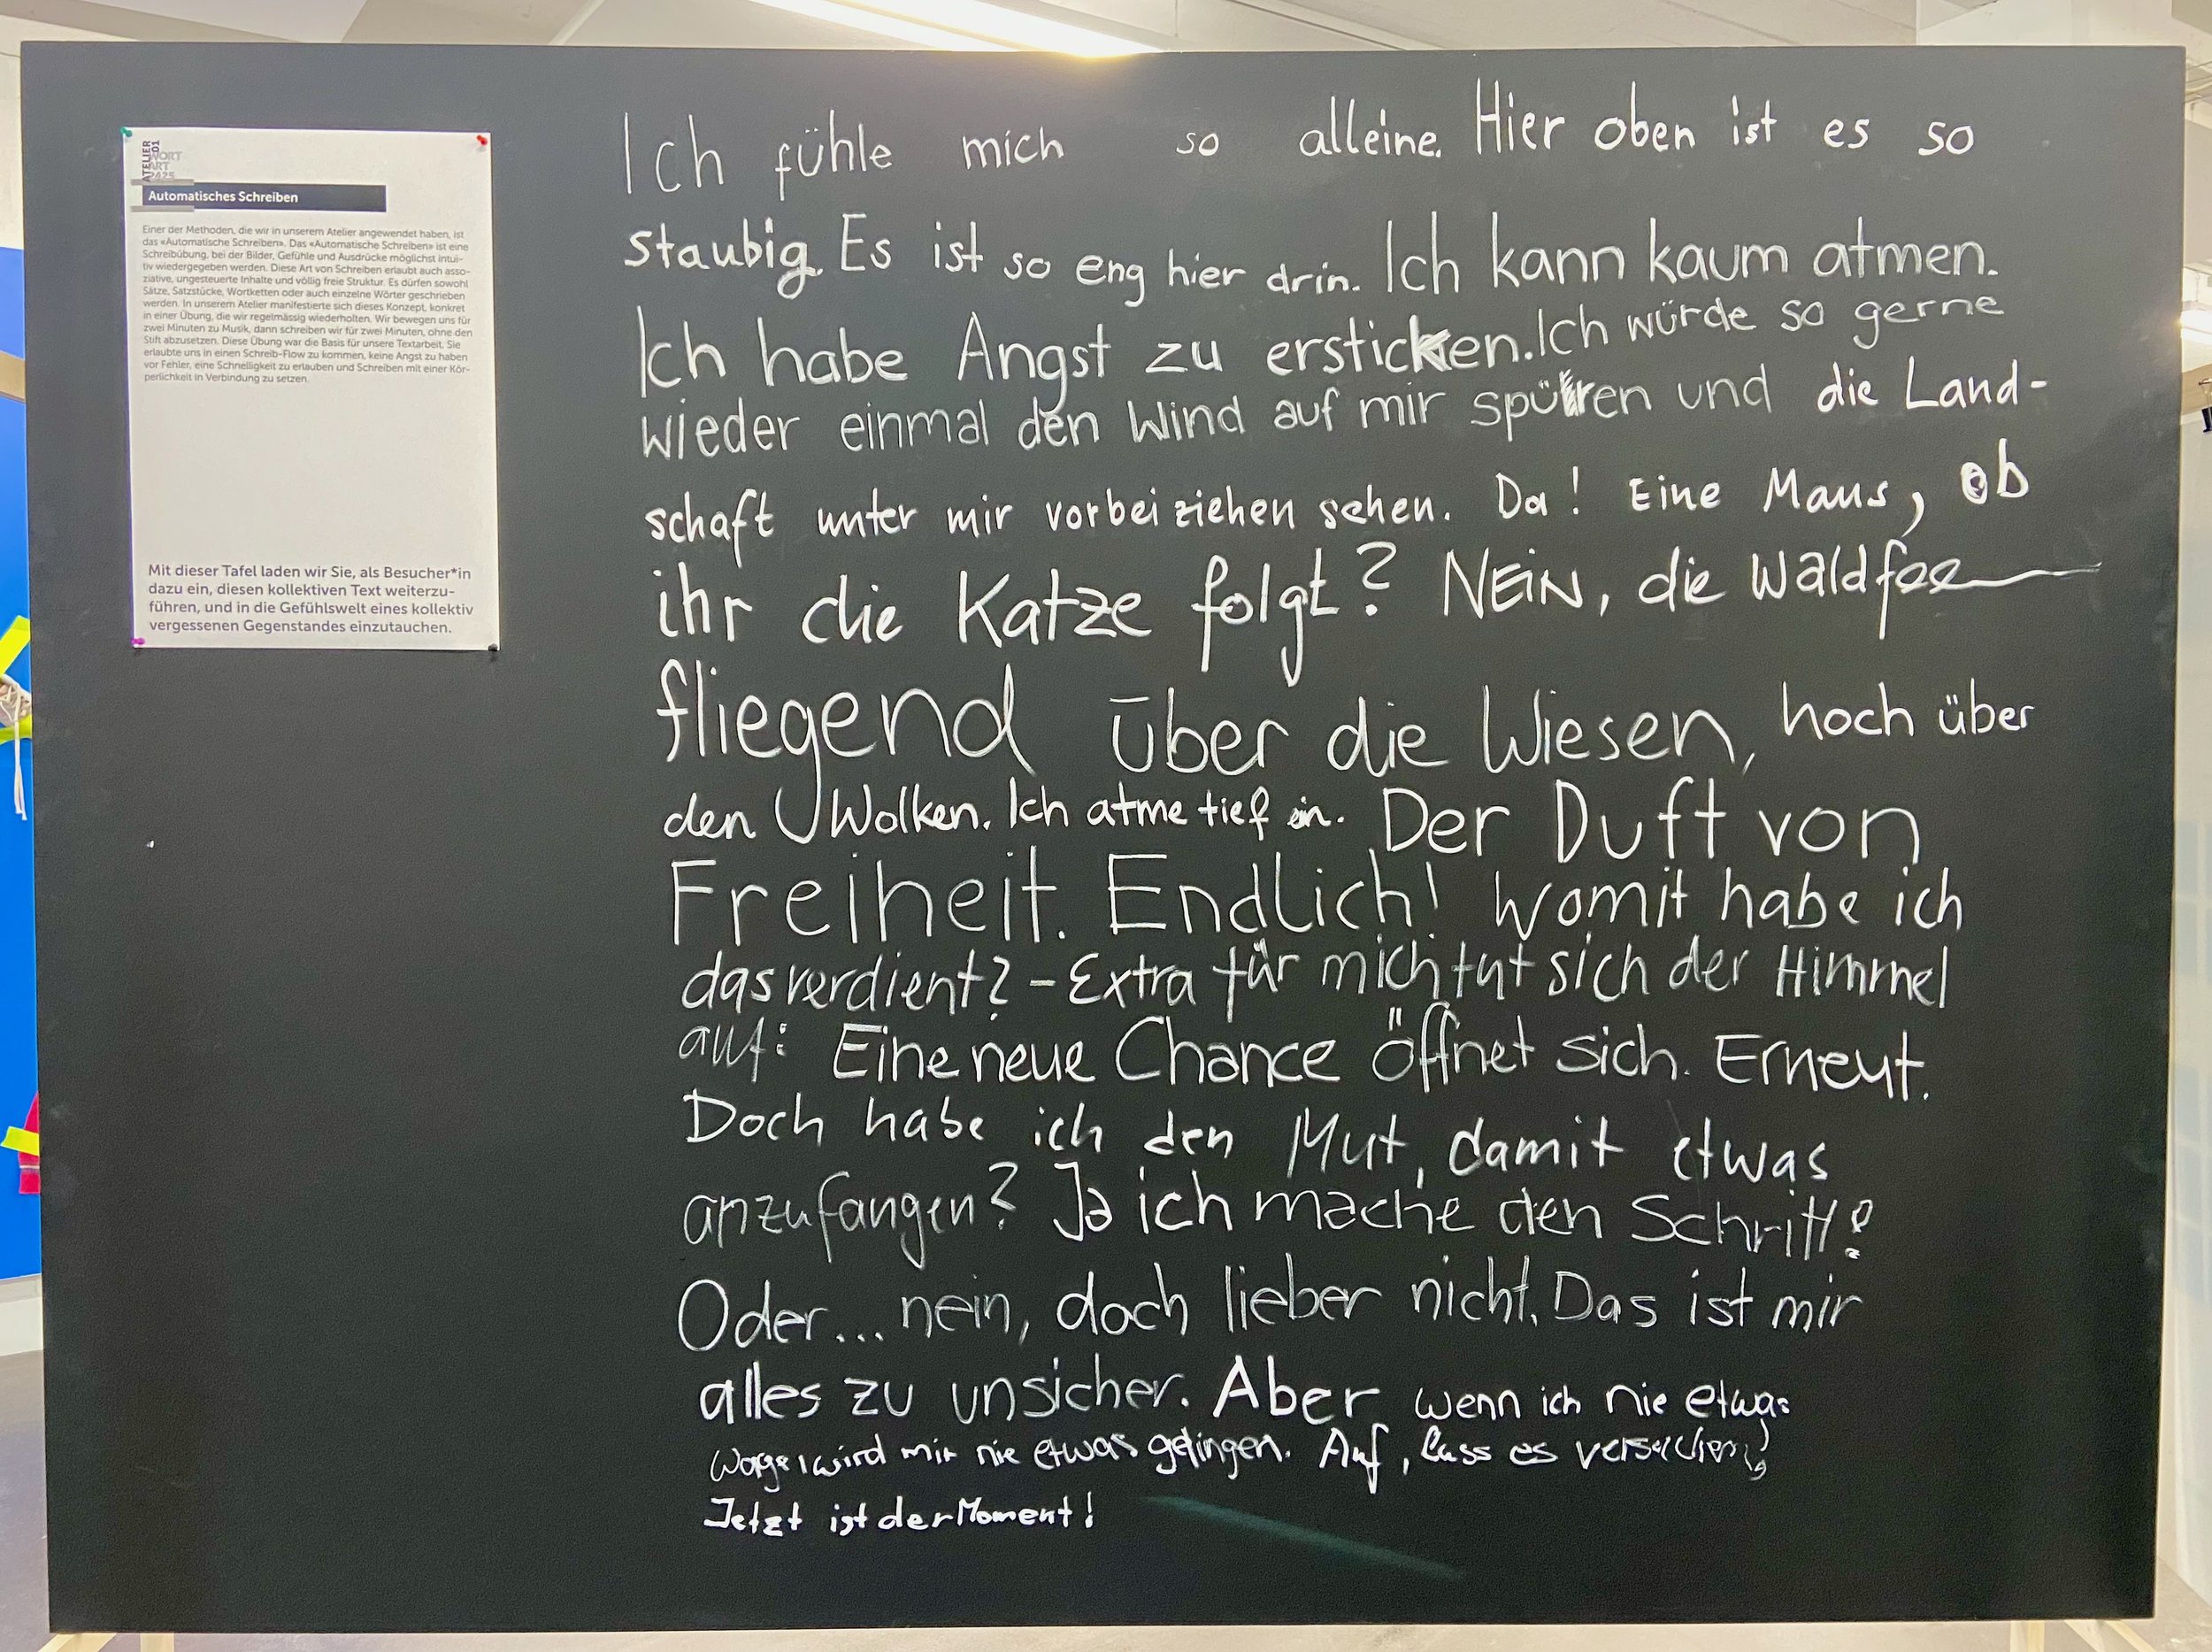 ATELIER
01
WORT
ART
2425
Automatisches Schreiben
Einer der Methoden, die wir in unserem Atelier angewendet haben, ist
das «Automatische Schreiben». Das «Automatische Schreiben» ist eine
Schreibübung, bei der Bilder, Gefühle und Ausdrücke möglichst intui-
tiv wiedergegeben werden. Diese Art von Schreiben erlaubt auch asso-
ziative, ungesteuerte Inhalte und völlig freie Struktur. Es dürfen sowohl
Sätze, Satzstücke, Wortketten oder auch einzelne Wörter geschrieben
werden. In unserem Atelier manifestierte sich dieses Konzept, konkret
in einer Übung, die wir regelmässig wiederholten. Wir bewegen uns für
zwei Minuten zu Musik, dann schreiben wir für zwei Minuten, ohne den
Stift abzusetzen. Diese Übung war die Basis für unsere Textarbeit. Sie
erlaubte uns in einen Schreib-Flow zu kommen, keine Angst zu haben
vor Fehler, eine Schnelligkeit zu erlauben und Schreiben mit einer Kör-
perlichkeit in Verbindung zu setzen.
Mit dieser Tafel laden wir Sie, als Besucher*in
dazu ein, diesen kollektiven Text weiterzu-
führen, und in die Gefühlswelt eines kollektiv
vergessenen Gegenstandes einzutauchen.
Ich fühle mich so alleine. Hier oben ist es so
staubig. Es ist so eng hier drin. Ich kann kaum atmen.
Ich habe Angst zu ersticken. Ich würde so gerne
wieder einmal den Wind auf mir spüren und die Land-
schaft unter mir vorbei ziehen sehen. Da! Eine Maus, ob
ihr die Katze folgt? NEIN, die Waldfee
fliegend über die Wiesen, hoch über
den Wolken. Ich atme tief ein. Der Duft von
Freiheit. Endlich! Womit habe ich
das verdient? - Extra für mich tut sich der Himmel
auf: Eine neue Chance öffnet sich. Erneut.
Doch habe ich den Mut, damit etwas
anzufangen? Ja ich mache den Schritt!
Oder... nein, doch lieber nicht. Das ist mir
alles zu unsicher. Aber wenn ich nie etwas
wage, wird mir nie etwas gelingen. Auf, lass es versuchen!
Jetzt ist der Moment!